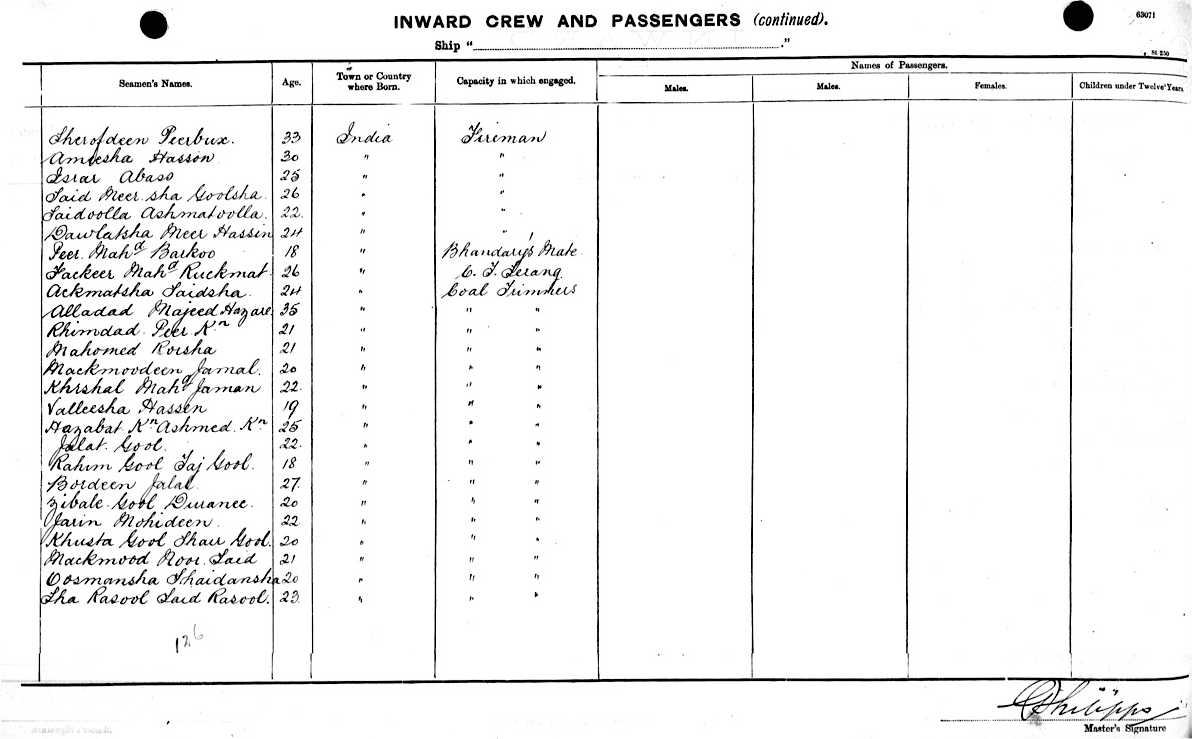 INWARD CREW AND PASSENGERS (continued).
63071
St 250
Ship " "
Seamen's Names. Age. Town or Country where Born. Capacity in which engaged. Names of Passengers.
Males. Males. Females. Children under Twelve Years
Sherofdeen Peerbux. 33 India Fireman
Ameesha Hasson 30 " "
Israr Abaso 25 " "
Said Meer sha Goolsha. 26 " "
Saidoolla Ashmatoolla. 22. " "
Dawlatsha Meer Hassin 24 " "
Peer Mahd Barkoo 18 " Bhandary's Mate
Fackeer Mahd Ruckmat 26 " C. T. Serang
Ackmatsha Saidsha. 24 " Coal Trimmers
Alladad Majeed Hazare 35 " " "
Khimdad Peer Kn 21 " " "
Mahomed Roisha 21 " " "
Mackmoodeen Jamal. 20 " " "
Khrshal Mahd Jaman 22. " " "
Valleesha Hassen 19 " " "
Hazabat Kn Ashmed. Kn 25 " " "
Jalat. Gool. 22. " " "
Rahim Gool Taj Gool. 18 " " "
Bordeen Jalal 27. " " "
Zibale Gool Duranee. 20 " " "
Jarin Mohideen. 22 " " "
Khusta Gool Shau Gool. 20 " " "
Mackmood Noor Said 21 " " "
Oosmansha Shaidansha 20 " " "
Sha Rasool Said Rasool. 23 " " "
126
Philipps
Master's Signature